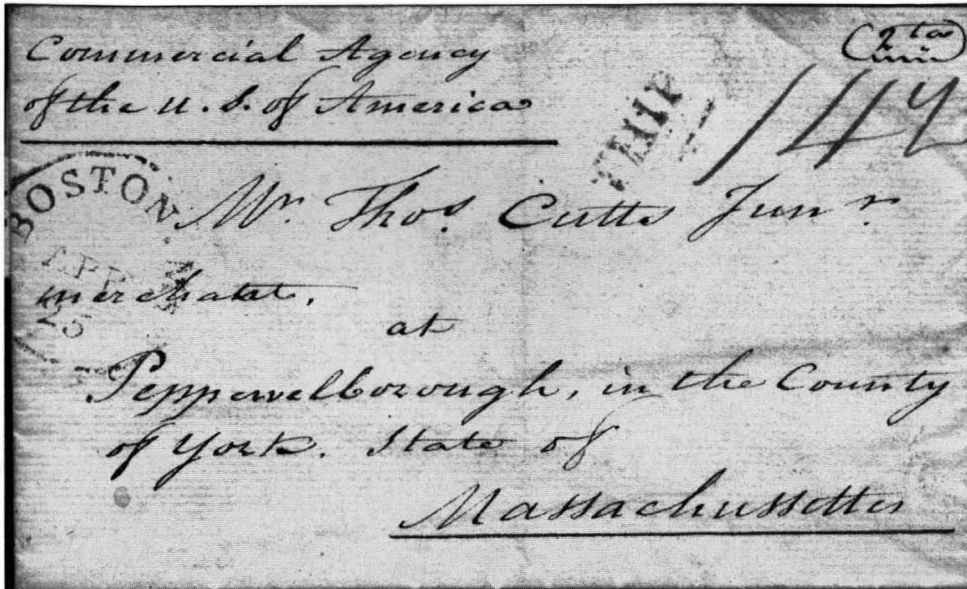 Commercial Agency
of the U. S. of America
BOSTON
Mr. Thos. Cutts Junr.
merchatt.
at
Pepperrelborough, in the County
of York. State of
Massachussetts